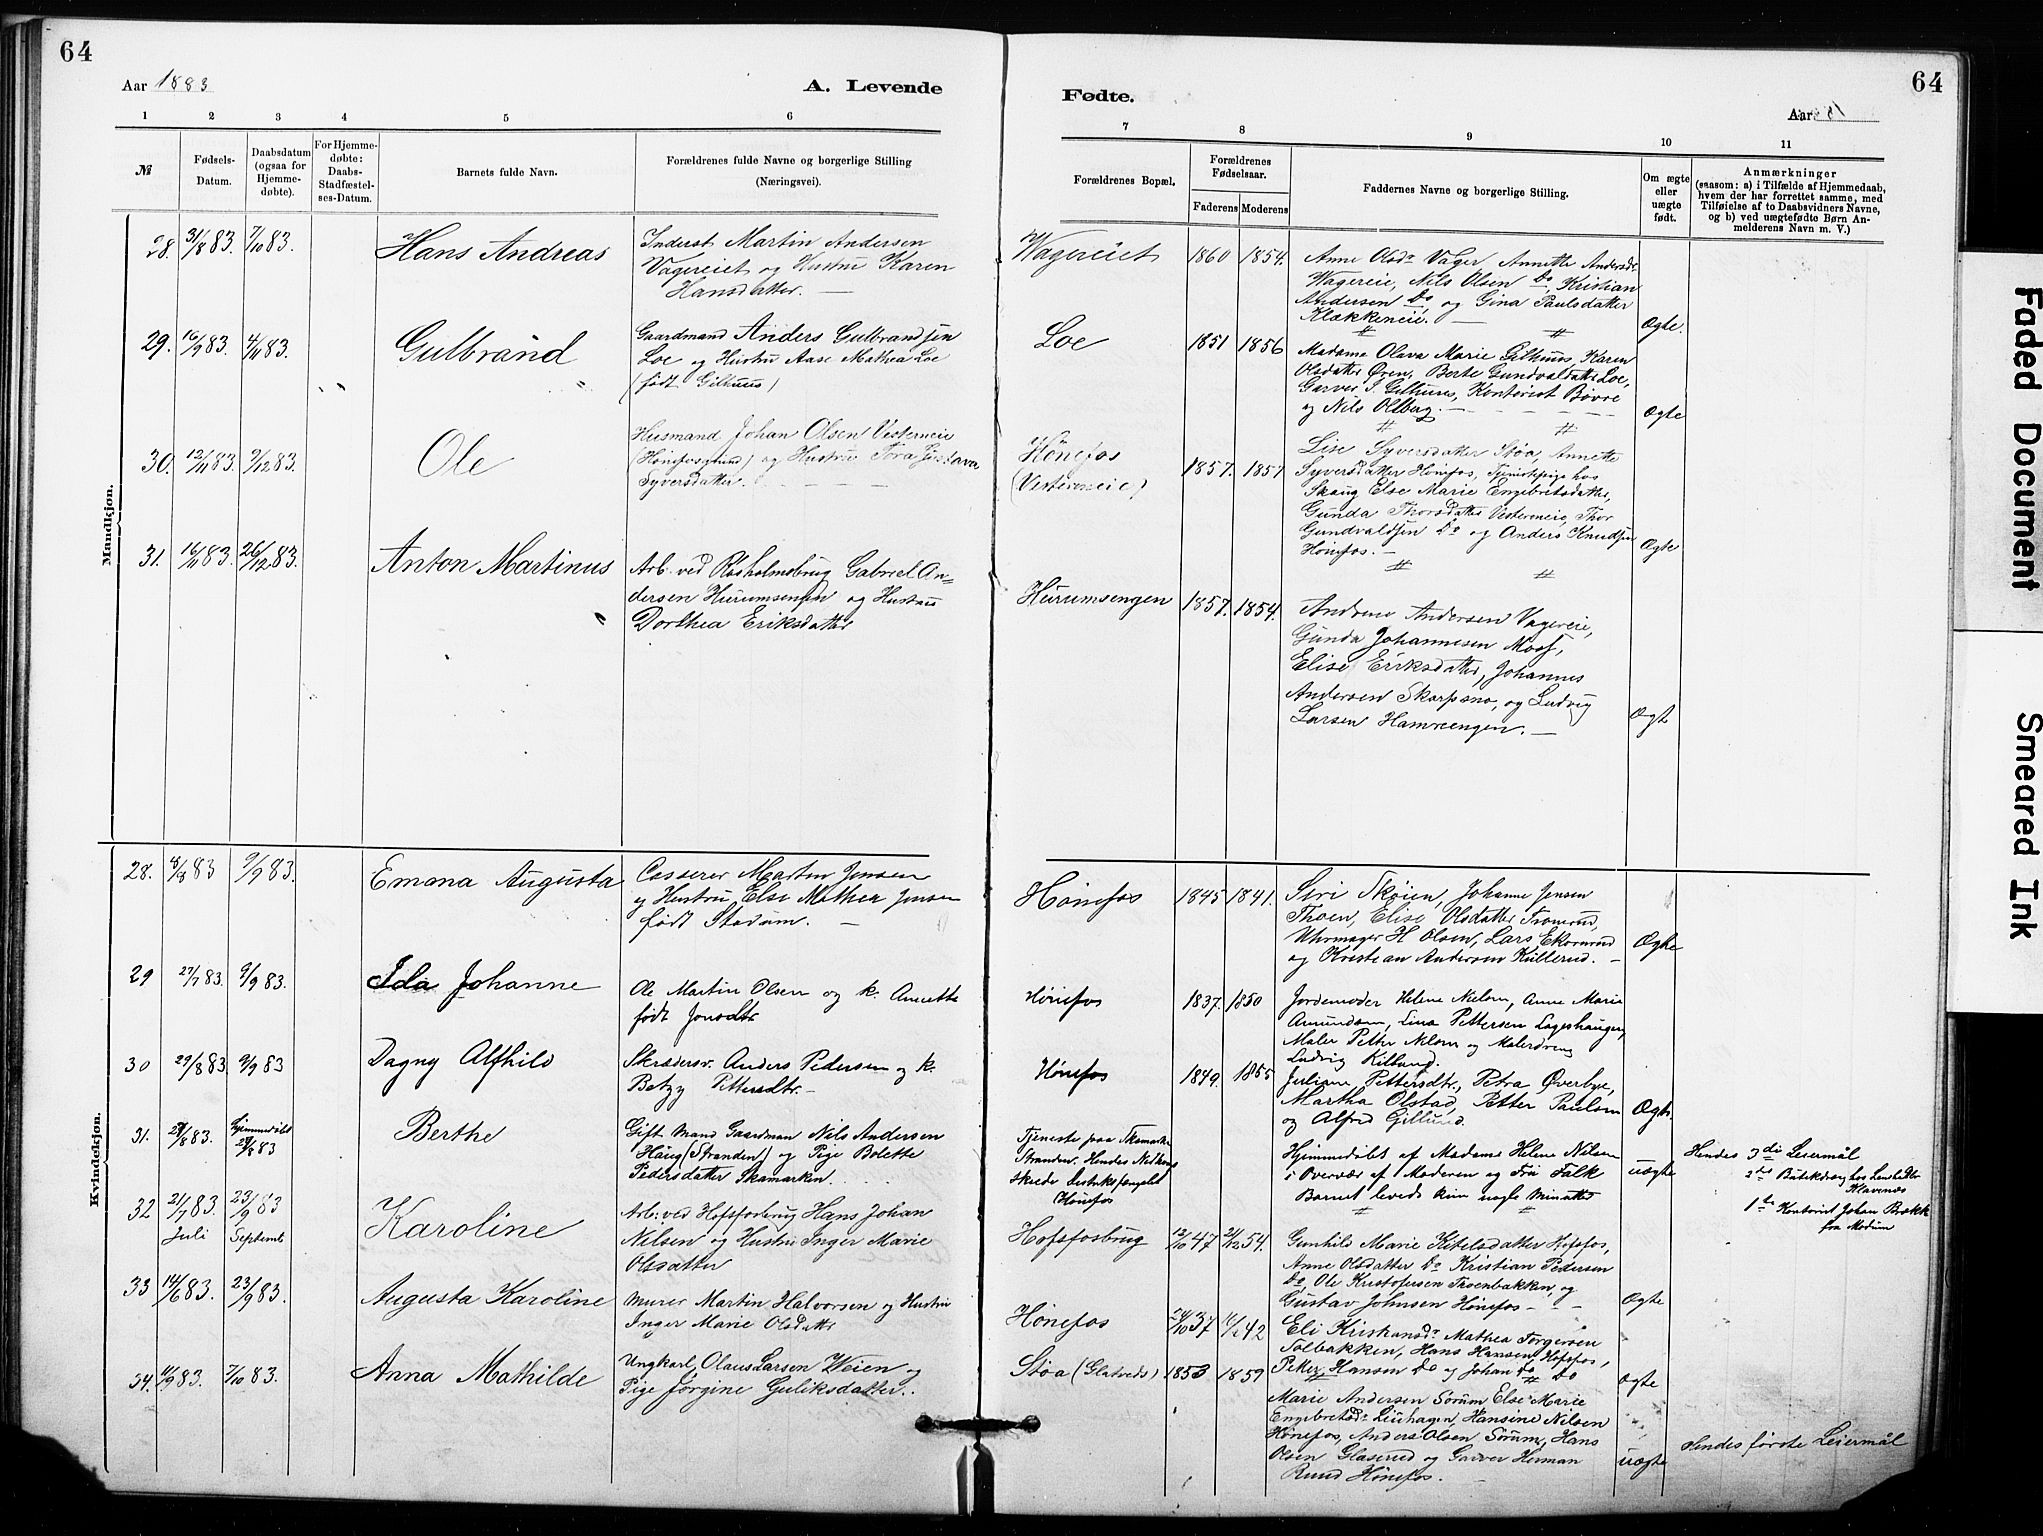 64
64
Aar 1883
A. Levende
Fødte.
Aar
1 2 3 4 5 6
7 8 9 10 11
№
Fødsels-
Datum.
Daabsdatum
(ogsaa for
Hjemme-
døbte).
For Hjemme-
døbte:
Daabs-
Stadfæstel-
ses-Datum.
Barnets fulde Navn.
Forældrenes fulde Navne og borgerlige Stilling
(Næringsvei).
Forældrenes Bopæl.
Forældrenes
Fødselsaar.
Faderens Moderens
Faddernes Navne og borgerlige Stilling.
Om ægte
eller
uægte
født.
Anmærkninger
(saasom: a) i Tilfælde af Hjemmedaab,
hvem der har forrettet samme, med
Tilføielse af to Daabsvidners Navne,
og b) ved uægtefødte Børn An-
melderens Navn m. V.)
Mandkjøn.
28. 31/8 83. 7/10 83. Hans Andreas
Inderst Martin Andersen
Vagereiet og Hustru Karen
Hansdatter. —
Wagereiet 1860 1854.
Anne Olsdr Vager, Annette Andersdr
Wagereie, Nils Olsen Do, Kristian
Andersen Do, og Gina Paulsdatter
Klækkeneie. —
Ægte.
29. 16/9 83. 4/11 83. Gulbrand
Gaardmand Anders Gulbrandsen
Loe og Hustru Aase Mathea Loe
(født Gilhuus)
Loe 1851 1856
Madame Olava Marie Gilhuus, Karen
Olsdatter Øren, Berte Gundvaldsdatter Loe,
Garver S. Gilhuus, Kontorist Bøvre
og Nils Olsberg. —
Ægte
30. 12/11 83. 9/12 83. Ole
Husmand Johan Olsen Vesterneie
(Hønefosgrund) og Hustru Tora Gustava
Syversdatter.
Hønefos
(Vesterneie) 1857. 1857
Lise Syversdatter Støa, Annette
Syversdatter Hønefos, Tjenestepige hos
Skaug Else Marie Engebretsdatter,
Gunda Thorsdatter Vesterneie, Thor
Gundvaldsen Do og Anders Knudsen
Hønefos. —
Ægte
31. 16/11 83. 26/12 83. Anton Martinus
Arb. ved Røsholmsbrug Gabriel An-
dersen Hurumsengen og Hustru
Dorthea Eriksdatter
Hurumsengen 1857. 1854.
Andrine Andersen Vagereie,
Gunda Johannesen Moss,
Elise Eriksdatter, Johannes
Andersen Skarpsno, og Ludvig
Larsen Hamreengen. —
Ægte
Kvindekjøn.
28. 4/8 83 9/9 83. Emana Augusta
Casserer Martin Jensen
og Hustru Else Mathea Jensen
født Stadum. —
Hønefos 1845 1841.
Siri Skøien, Johanne Jensen
Thoen, Elise Olsdatter Tronrud,
Uhrmager H Olsen, Lars Ekornrud
og Kristian Andersen Kullerud. —
Ægte
29 27/7 83. 9/9 83. Ida Johanne
Ole Martin Olsen og k. Annette
født Jonsdtr
Hønefos 1837. 1850
Jordemoder Helene Nielsen, Anne Marie
Amundsen, Lina Pettersen Lageshaugen,
Maler Petter Nelsen og Malerdreng
Ludvig Killund.
30 29/8 83. 9/9 83 Dagny Alfhild
Skrædersv. Anders Pedersen og k.
Betzy Pettersdtr. —
Hønefos 1849. 1855
Juliane Pettersdtr., Petra Øverbye,
Martha Olstad, Petter Paulsen
og Alfred Gillund.
Ægte.
31. 29/8 83. Hjemmedøbt
29/8 83 Berthe
Gift Mand Gaardman Nils Andersen
Haug (Stranden) og Pige Bolette
Pedersdatter Skamarken.
Tjeneste paa Skamarken
Stranden. Hendes Nedkomst
skede Distriktsfængslet
Hønefos
Hjemmedøbt af Madame Helene Nilsen
i Overvær af Moderen og Fru Falk
Barnet levede kun nogle Minutter
uægte
Hendes 3die Leiermål
2det Butikdreng hos Landhdlr
Klavenæs
1ste Kontorist Johan Brækk
fra Modum
32 21/7 83. 23/9 83
Juli Septemb
Karoline
Arb. ved Hofsfosbrug Hans Johan
Nilsen og Hustru Inger Marie
Olsdatter
Hofsfosbrug 12/10 47 21/12 54.
Gunhild Marie Kitelsdatter Hofsfos,
Anne Olsdatter Do, Kristian Pedersen
Do, Ole Kristofersen Thoenbakken, og
Gustav Johnsen Hønefos —
Ægte
33 14/6 83. 23/9 83. Augusta Karoline
Murer Martin Halvorsen og Hustru
Inger Marie Olsdatter
Hønefos 24/10 37 42
Eli Kristiansdr. Mathea Torgersen
Tolbakken, Hans Hansen Hofsfos,
Peter Hansen Do og Johan Do Do
Ægte
34. 11/9 83. 7/10 83. Anna Mathilde
Ungkarl, Olaus Larsen Weien og
Pige Jørgine Guliksdatter.
Støa (Glatveds) 1853 1859
Marie Andersen Sørum, Else Marie
Engebretsdr Liuhagen, Hansine Nilsen
Hønefos, Anders Olsen Sørum, Hans
Olsen Glaserud og Garver Herman
Ruud Hønefos. —
uægte
Hendes første Leiermål
Faded Document
Smeared Ink